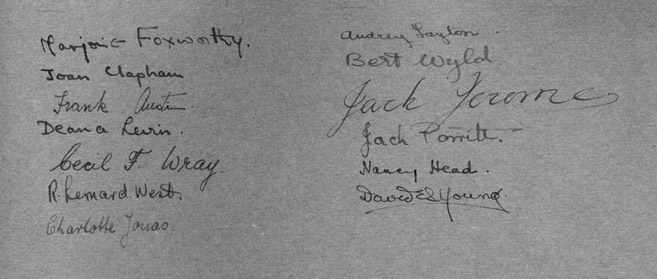 Marjorie Foxworthy.
Joan Clapham
Frank Austin.
Deana Levin.
Cecil F Wray
R. Lennard West.
Charlotte Jonas.
Audrey Taylor.
Bert Wyld
Jack Jerome
Jack Porritt.
Nancy Head.
David E S Young.